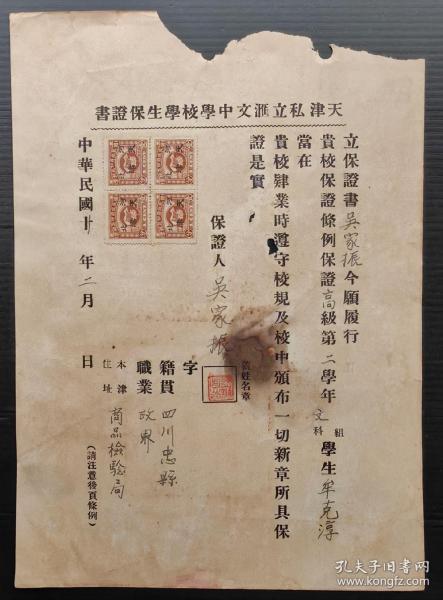 天津私立滙文中學校學生保證書
立保證書吳家振今願履行
貴校保證條例保證高級第二學年文科組學生牟克淳
當在
貴校肄業時遵守校規及校中頒布一切新章所具保
證是實
保證人 吳家振
蓋姓名章
字
籍貫 四川忠縣
職業 政界
本津住址 商品檢驗局
中華民國廿 年二月 日
(請注意後頁條例)
孔夫子旧书网
www.kongfz.com